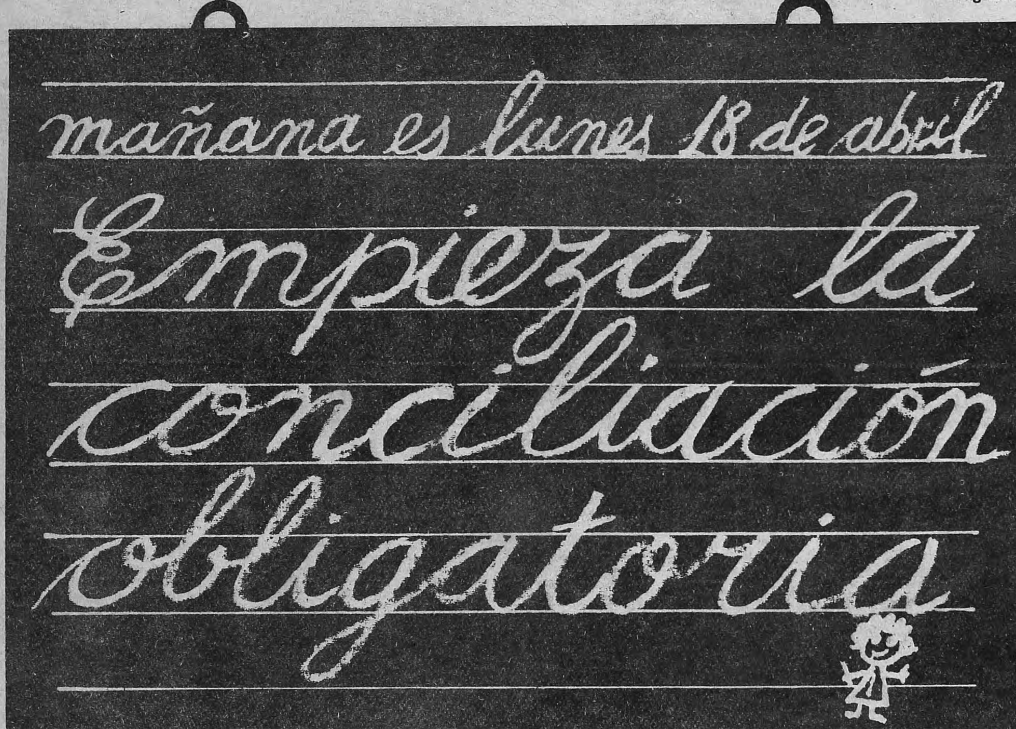 mañana es lunes 18 de abril
Empieza la
conciliación
obligatoria